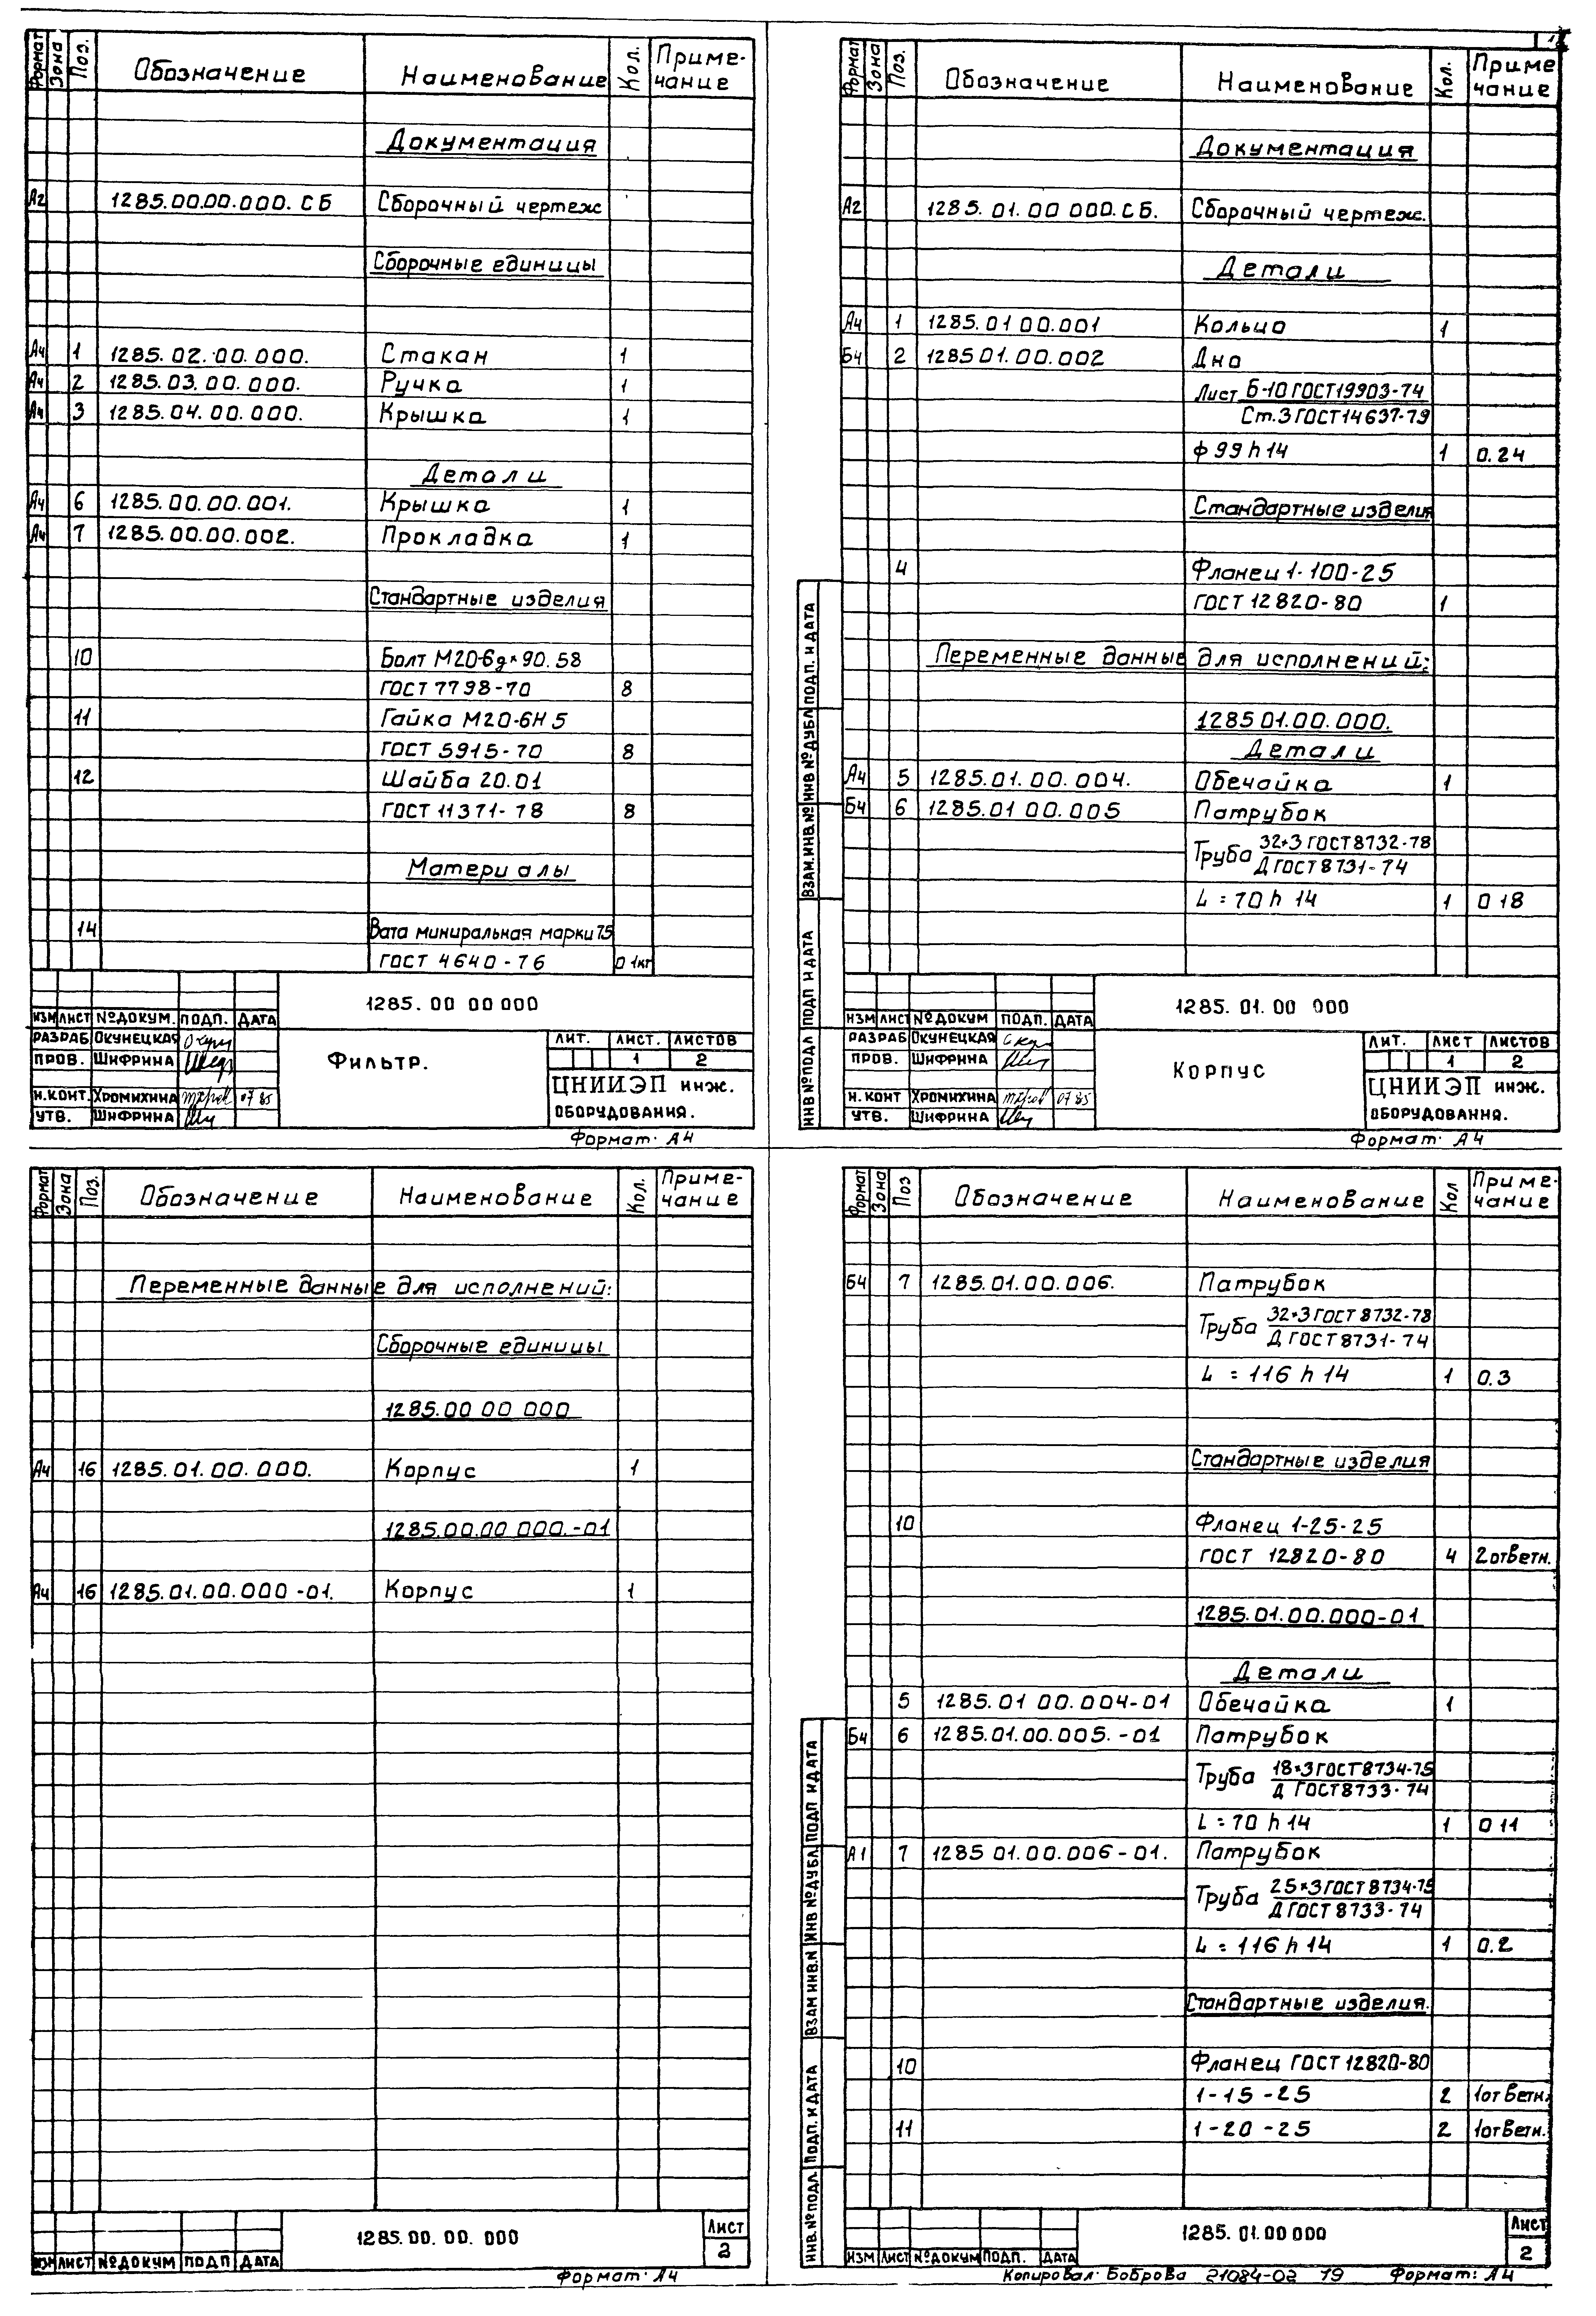 Формат Зона Поз. Обозначение Наименование Кол. Приме-
чание
Документация
А2 1285.00.00.000.СБ Сборочный чертеж
Сборочные единицы
А4 1 1285.02.00.000. Стакан 1
А4 2 1285.03.00.000. Ручка 1
А4 3 1285.04.00.000. Крышка 1
Детали
А4 6 1285.00.00.001. Крышка 1
А4 7 1285.00.00.002. Прокладка 1
Стандартные изделия
10 Болт М20-6g×90.58
ГОСТ 7798-70 8
11 Гайка М20-6Н5
ГОСТ 5915-70 8
12 Шайба 20.01
ГОСТ 11371-78 8
Материалы
14 Вата миниральная марки 75
ГОСТ 4640-76 0 1кг
1285.00 00 000
ИЗМ ЛИСТ №ДОКУМ. ПОДП. ДАТА
РАЗРАБ ОКУНЕЦКАЯ
ПРОВ. ШИФРИНА
Н.КОНТ. ХРОМИХИНА 07 85
УТВ. ШИФРИНА
ФИЛЬТР.
ЛИТ. ЛИСТ. ЛИСТОВ
1 2
ЦНИИЭП инж.
ОБОРУДОВАНИЯ.
Формат: А4
Формат Зона Поз. Обозначение Наименование Кол. Приме
чание
Документация
А2 1285.01.00 000.СБ. Сборочный чертеж.
Детали
А4 1 1285.01 00.001 Кольцо 1
Б4 2 1285 01.00.002 Дно
Лист Б-10 ГОСТ 19903-74
Ст.3 ГОСТ 14637-79
ф 99 h 14 1 0.24
Стандартные изделия
4 Фланец 1-100-25
ГОСТ 12820-80 1
Переменные данные для исполнений:
1285 01.00.000.
Детали
А4 5 1285.01.00.004. Обечайка 1
Б4 6 1285.01 00.005 Патрубок
Труба 32×3 ГОСТ 8732-78
Д ГОСТ 8731-74
L = 70 h 14 1 0 18
ИНВ №ПОДЛ ПОДП И ДАТА ВЗАМ.ИНВ.№ ИНВ №ДУБЛ ПОДП. И ДАТА
1285.01.00 000
ИЗМ ЛИСТ №ДОКУМ ПОДП. ДАТА
РАЗРАБ ОКУНЕЦКАЯ
ПРОВ. ШИФРИНА
Н.КОНТ ХРОМИХИНА 07 85
УТВ. ШИФРИНА
КОРПУС
ЛИТ. ЛИСТ ЛИСТОВ
1 2
ЦНИИЭП инж.
ОБОРУДОВАНИЯ.
Формат: А4
Формат Зона Поз. Обозначение Наименование Кол. Приме-
чание
Переменные данные для исполнений:
Сборочные единицы
1285.00 00 000
А4 16 1285.01.00.000. Корпус 1
1285.00.00 000.-01
А4 16 1285.01.00.000 -01. Корпус 1
1285.00.00.000
ИЗМ ЛИСТ №ДОКУМ ПОДП ДАТА
ЛИСТ
2
Формат: А4
Формат Зона Поз Обозначение Наименование Кол Приме-
чание
Б4 7 1285.01.00.006. Патрубок
Труба 32×3 ГОСТ 8732-78
Д ГОСТ 8731-74
L = 116 h 14 1 0.3
Стандартные изделия
10 Фланец 1-25-25
ГОСТ 12820-80 4 2ответн.
1285.01.00.000-01
Детали
5 1285.01 00.004-01 Обечайка 1
Б4 6 1285.01.00.005.-01 Патрубок
Труба 18×3 ГОСТ 8734-75
Д ГОСТ 8733-74
L = 70 h 14 1 0 11
А1 7 1285 01.00.006-01. Патрубок
Труба 25×3 ГОСТ 8734-75
Д ГОСТ 8733-74
L = 116 h 14 1 0.2
Стандартные изделия.
10 Фланец ГОСТ 12820-80
1-15-25 2 1ответн.
11 1-20-25 2 1ответн.
ИНВ.№ПОДЛ ПОДП. И ДАТА ВЗАМ ИНВ.№ ИНВ №ДУБЛ ПОДП И ДАТА
1285.01.00 000
ИЗМ ЛИСТ №ДОКУМ ПОДП. ДАТА
ЛИСТ
2
Копировал: Боброва 21084-02 19 Формат: А4